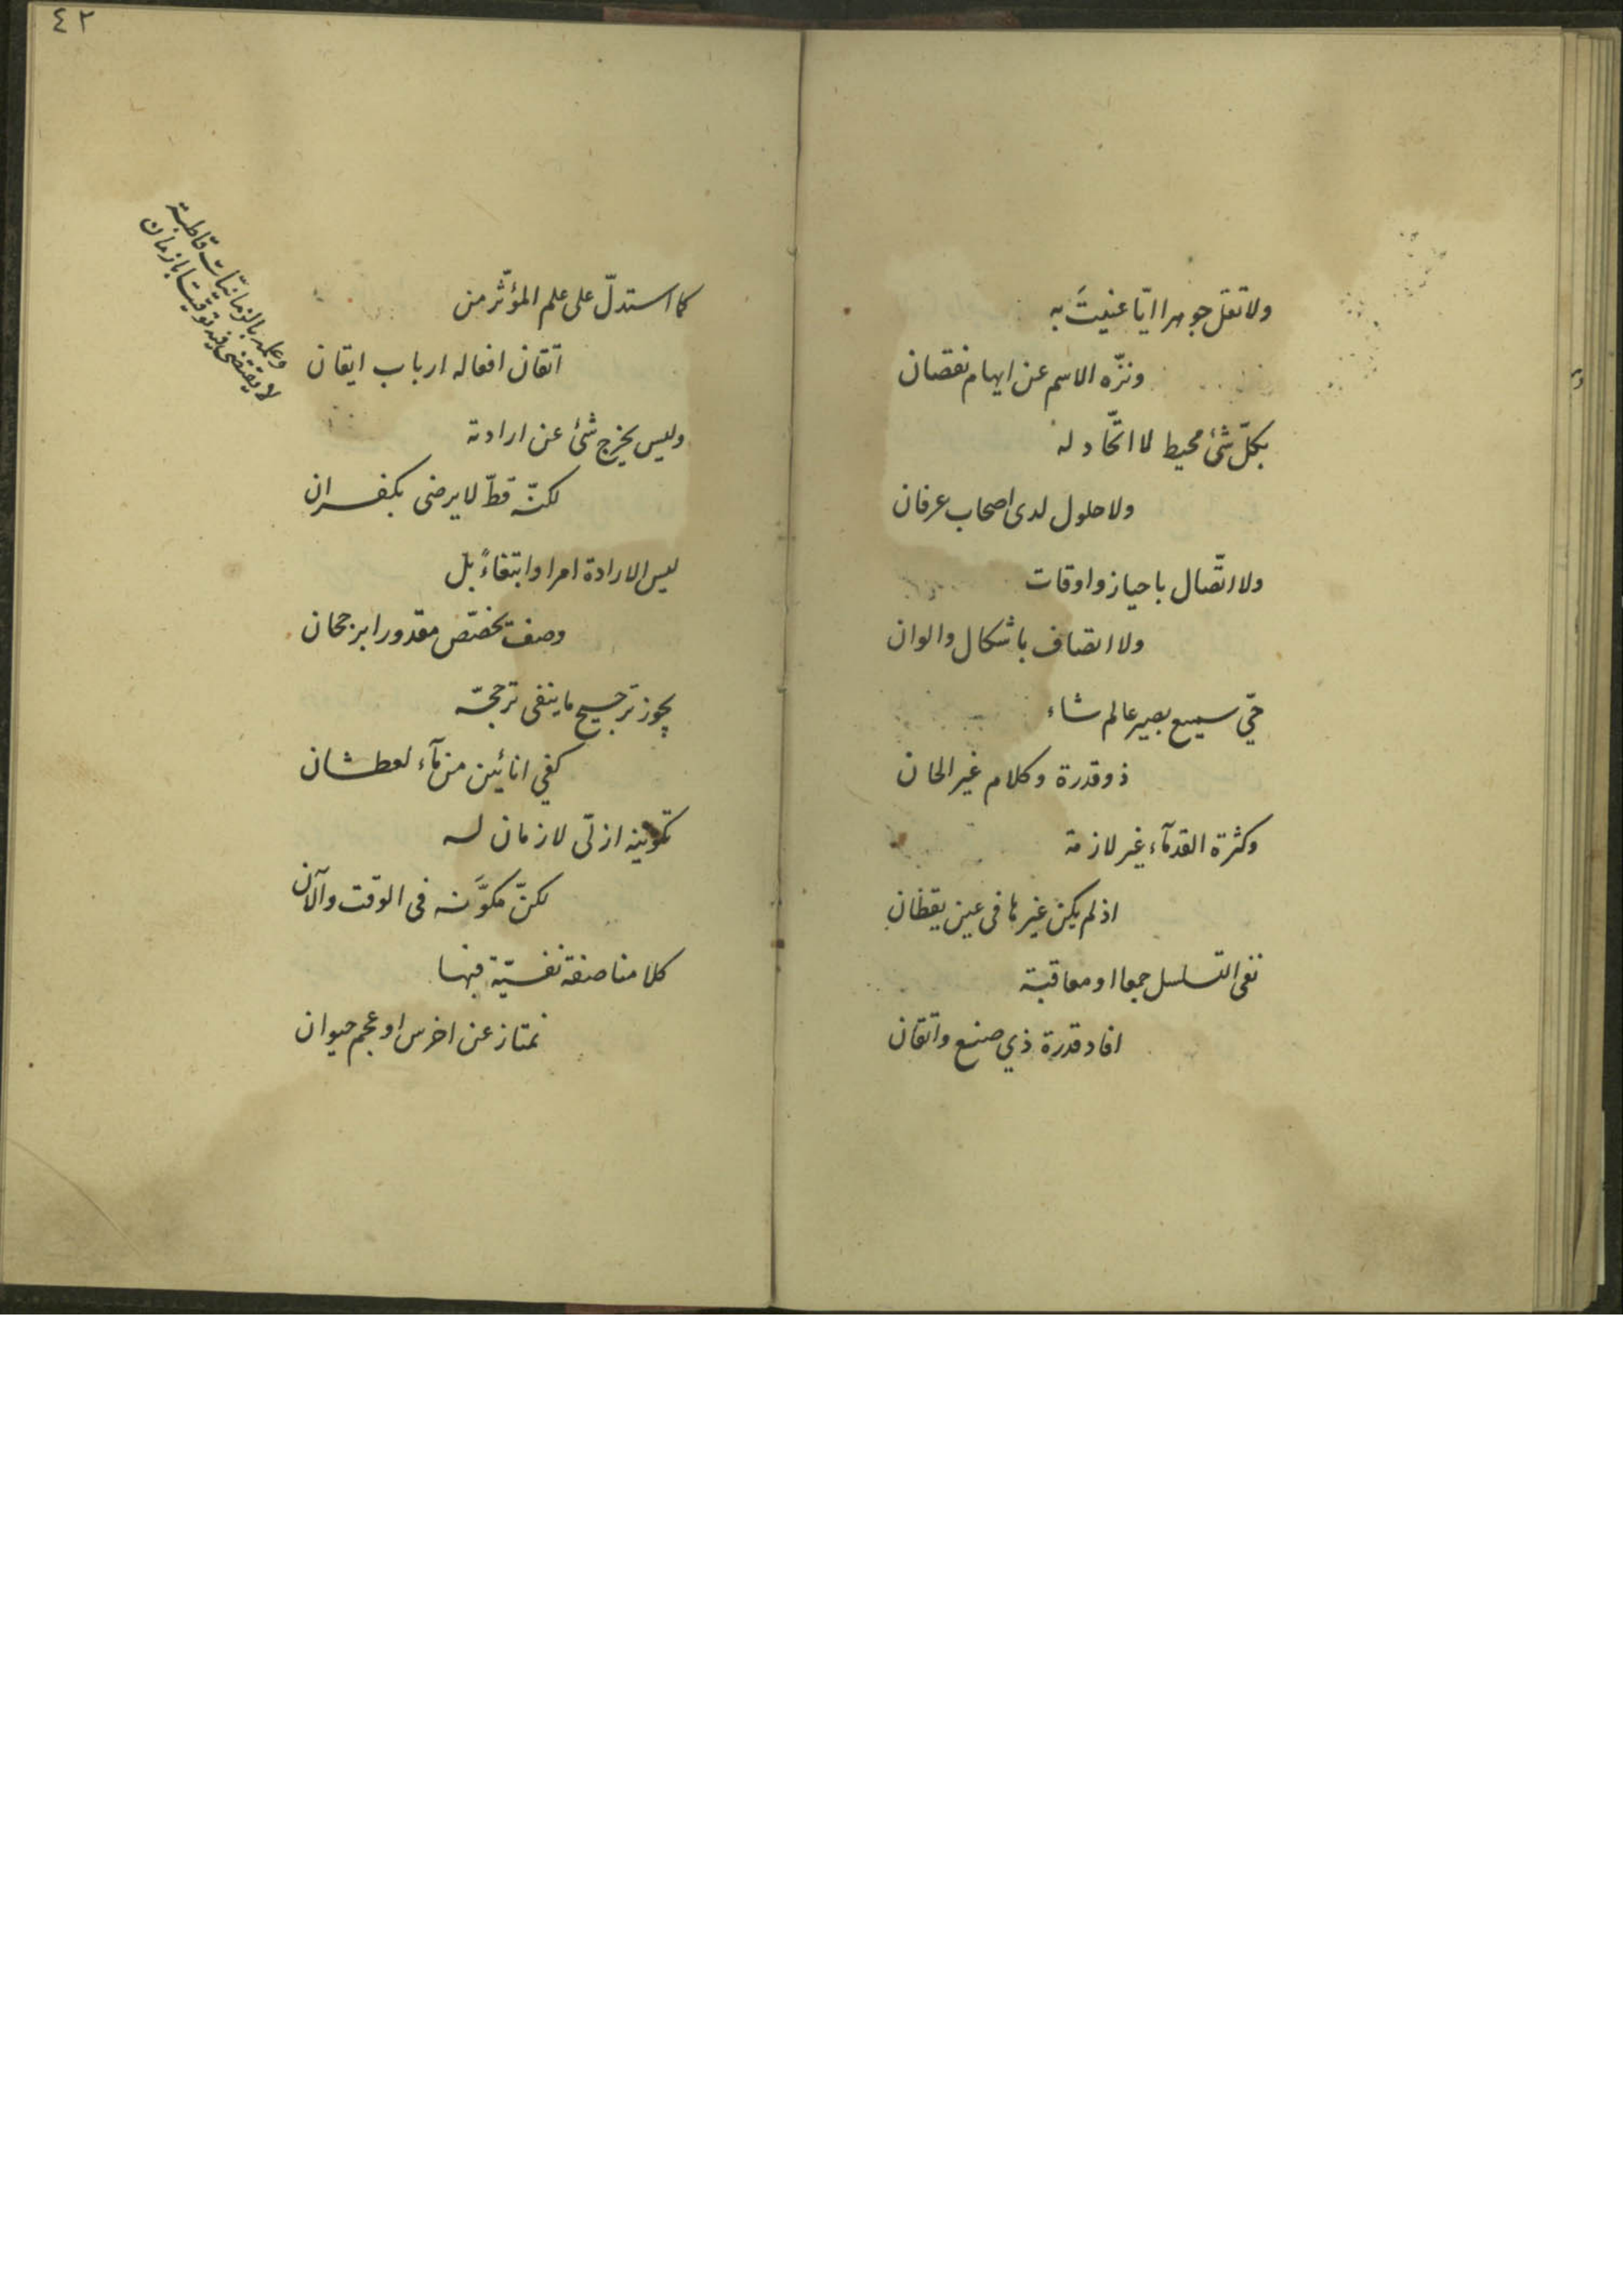 ولا تقل جوهرا ايّا عنيتَ به
ونزّه الاسم عن ايهام نقصان
بكلّ شئ محيط لا اتّحاد له
ولا حلول لدى اصحاب عرفان
ولا اتّصال باحياز واوقات
ولا اتصاف باشكال والوان
حيّ سميع بصير عالم شاء
ذو قدرة وكلام غير الحان
وكثرة القدمآء غير لازمة
اذ لم يكن غيرها في عين يقظان
نفى التسلسل جمعا او معاقبة
افاد قدرة ذي صنع واتقان
٤٢
كما استدلّ على علم المؤثّر من
اتقان افعاله ارباب ايقان
وليس يخرج شئ عن ارادته
لكنّه قطّ لا يرضى بكفران
ليس الارادة امرا وابتغاءً بل
وصف يخصّص مقدورا برجحان
يجوز ترجيح ما ينفى ترجحّه
كفي انائين من مآء لعطشان
تكوينه ازلى لا زمان له
لكنّ مكوَّنه فى الوقت والآن
كلامنا صفة نفسيّة فبها
نمتاز عن اخرس او عجم حيوان
وعلمه بالزمانيّات قاطبة
لا يقتضى فيه توقيتا بازمان